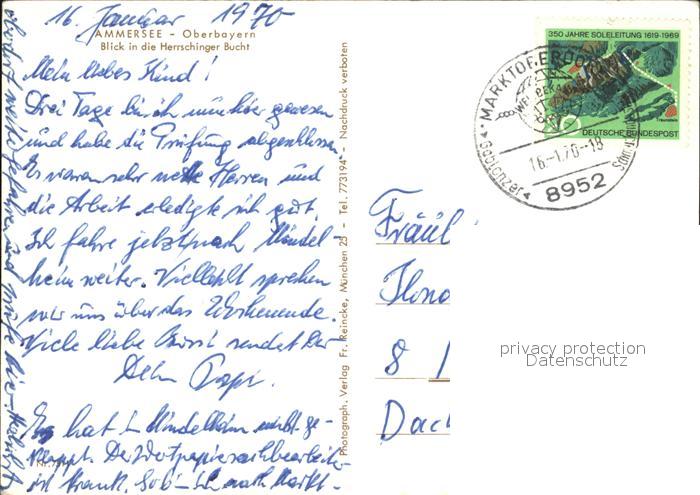 16. Januar 1970
AMMERSEE - Oberbayern
Blick in die Herrschinger Bucht
Mein liebes Kind!
Drei Tage bin ich nun hier gewesen
und habe die Prüfung abgeschlossen.
Es waren sehr nette Herren und
die Arbeit erledigte sich gut.
Ich fahre jetzt nach Mindel-
heim weiter. Vielleicht sprechen
wir uns über das Wochenende.
Viele liebe Bussi sendet Dir
Dein Papi.
Es hat in Mindelheim nicht ge-
klappt. Der Wertpapiersachbearbeiter
ist krank. So bin ich nach Markt-
oberdorf weitergefahren und prüfe hier
Photograph. Verlag Fr. Reincke, München 25 - Tel. 773194 - Nachdruck verboten
350 JAHRE SOLELEITUNG 1619-1969
Traunstein
DEUTSCHE BUNDESPOST
MARKTOBERDORF
16.-1.70-18
Gablonzer
8952
Fräul
Ilona
8
Dach
privacy protection
Datenschutz